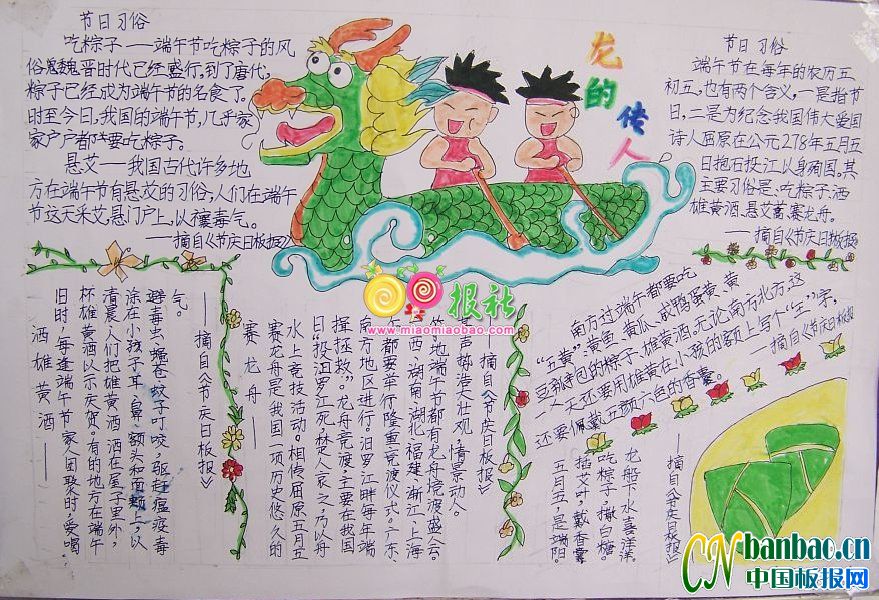 节日习俗
吃粽子——端午节吃粽子的风
俗魏晋时代已经盛行,到了唐代,
粽子已经成为端午节的名食了。
时至今日,我国的端午节,几乎家
家户户都要吃粽子。
悬艾——我国古代许多地
方在端午节有悬艾的习俗,人们在端午
节这天采艾悬门户上,以禳毒气。
——摘自《节庆日板报》
龙的传人
节日习俗
端午节在每年的农历五
初五,也有两个含义,一是指节
日,二是为纪念我国伟大爱国
诗人屈原在公元278年五月五
日抱石投江以身殉国。其
主要习俗是、吃粽子、洒
雄黄酒、悬艾蒿、赛龙舟。
——摘自《节庆日板报》
报社
www.miaomiaobao.com
洒雄黄酒——
旧时,每逢端午节家人团聚时,爱喝
杯雄黄酒以示庆贺。有的地方在端午
清晨,人们把雄黄酒洒在屋子里外,
涂在小孩子耳、鼻、额头和面颊上,以
避毒虫、蝇苍蚊子叮咬,驱赶瘟疫毒
气。
——摘自《节庆日板报》
赛龙舟——
赛龙舟是我国一项历史悠久的
水上竞技活动。相传屈原五月五
日“投汨罗江死,楚人哀之,乃以舟
楫拯救”。龙舟竞渡主要在我国
南方地区进行。汨罗江畔每年端
午都要举行隆重竞渡仪式。广东、
广西、湖南、湖北、福建、浙江、上海
等地端午节都有龙舟竞渡盛会。
其声势浩大壮观,情景动人。
摘自《节庆日板报》
南方过端午都要吃
“五黄”:黄鱼、黄瓜、咸鸭蛋黄、黄
豆瓣包的粽子、雄黄酒。无论南方北方,这
一天还要用雄黄在小孩的额上写个“王”字,
还要佩戴五颜六色的香囊。
——摘自《节庆日板报》
五月五,是端阳。
插艾叶,戴香囊。
吃粽子,撒白糖。
龙船下水喜洋洋。
——摘自《节庆日板报》
CN banbao.cn
中国板报网